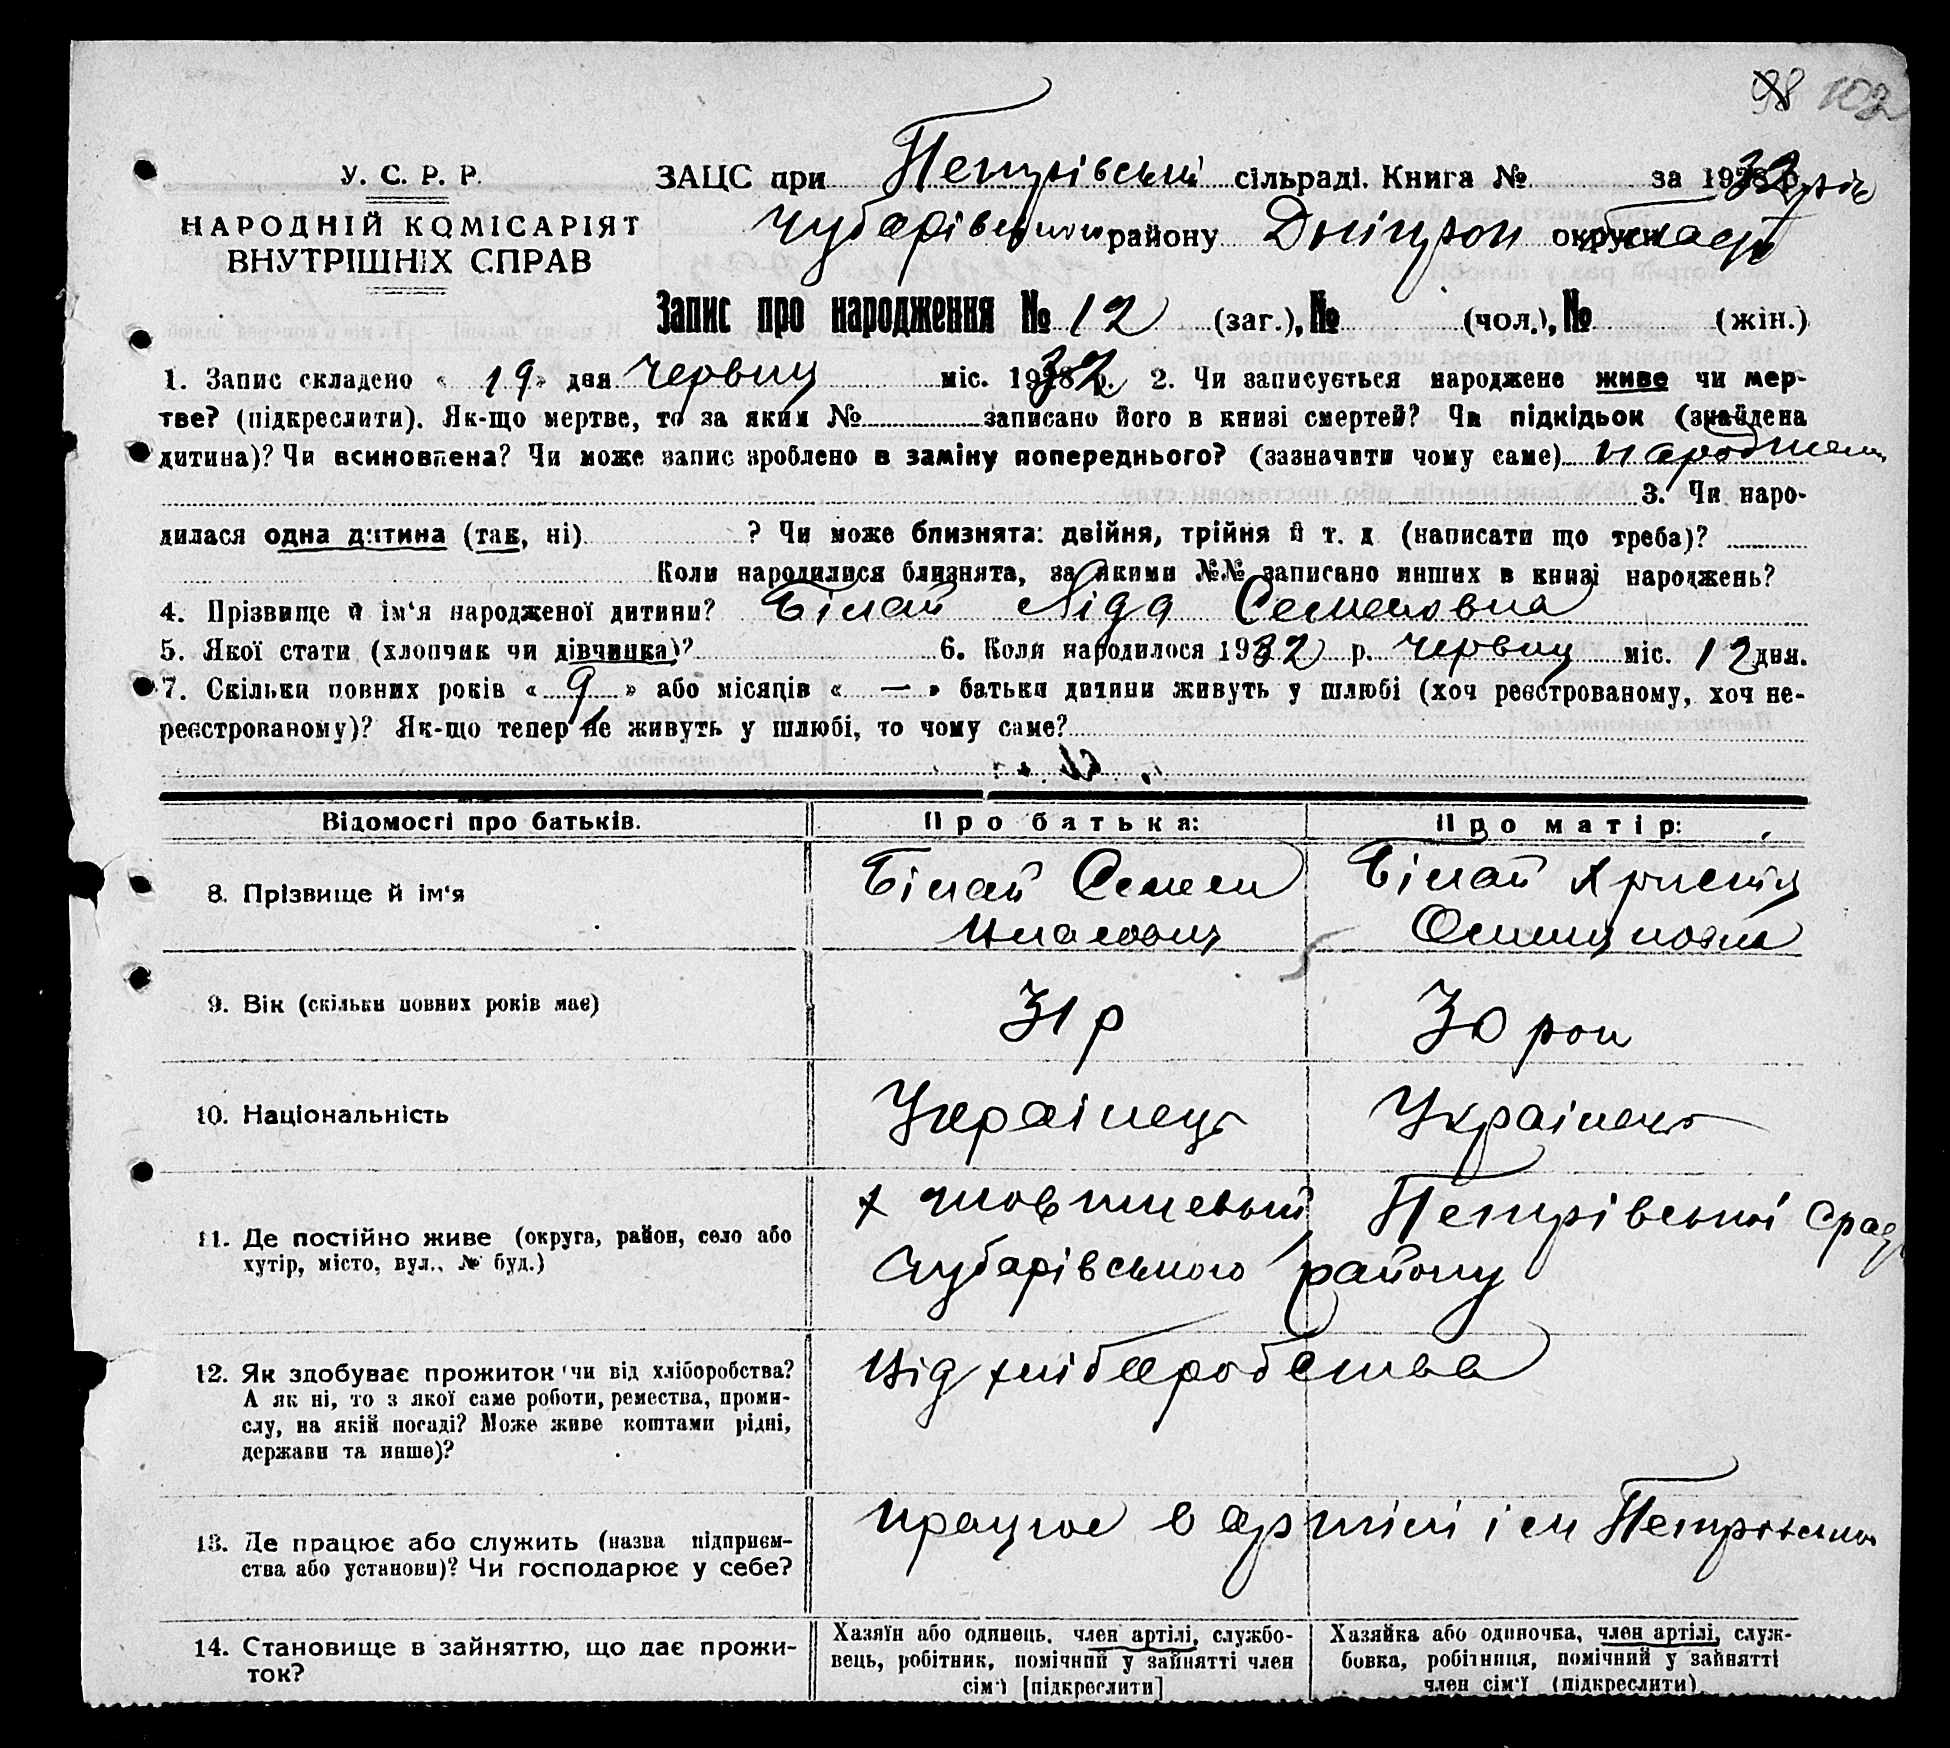 98 102
У. С. Р. Р.
НАРОДНІЙ КОМІСАРІЯТ
ВНУТРІШНІХ СПРАВ
ЗАЦС при Петрівській сільраді. Книга № за 1932 рік
Чубарівського району Дніпроп області
Запис про народження № 12 (заг.), № (чол.), № (жін.)
1. Запис складено « 19 » дня Червня міс. 1932 р. 2. Чи записується народжене живе чи мер-
тве? (підкреслити). Як-що мертве, то за яким № записано його в книзі смертей? Чи підкідьок (знайдена
дитина)? Чи всиновлена? Чи може запис зроблено в заміну попереднього? (зазначити чому саме)
3. Чи наро-
дилася одна дитина (так, ні) ? Чи може близнята: двійня, трійня й т. д (написати що треба)?
Коли народилися близнята, за якими №№ записано инших в книзі народжень?
4. Прізвище й ім'я народженої дитини? Білай Ліда Семеновна
5. Якої стати (хлопчик чи дівчинка)? 6. Коли народилося 1932 р. червня міс. 12 дня.
7. Скільки повних років « 9 » або місяців « — » батьки дитини живуть у шлюбі (хоч реєстрованому, хоч не-
реєстрованому)? Як-що тепер не живуть у шлюбі, то чому саме?
Відомості про батьків. Про батька: Про матір:
8. Прізвище й ім'я Білай Семен Білай Христя
9. Вік (скільки повних років має) 31 р 30 рок
10. Національність Українець Українець
11. Де постійно живе (округа, район, село або
хутір, місто, вул., № буд.)
Петрівської Срад
Чубарівського району
12. Як здобуває прожиток чи від хліборобства?
А як ні, то з якої саме роботи, ремества, проми-
слу, на якій посаді? Може живе коштами рідні,
держави та инше)?
Від хліборобства
13. Де працює або служить (назва підприєм-
ства або установи)? Чи господарює у себе?
працює в артілі ім Петровського
14. Становище в зайняттю, що дає прожи-
ток?
Хазяїн або одинець, член артілі, службо-
вець, робітник, помічний у зайнятті член
сім'ї [підкреслити]
Хазяйка або одиночка, член артілі, служ-
бовка, робітниця, помічний у зайнятті
член сім'ї (підкреслити)